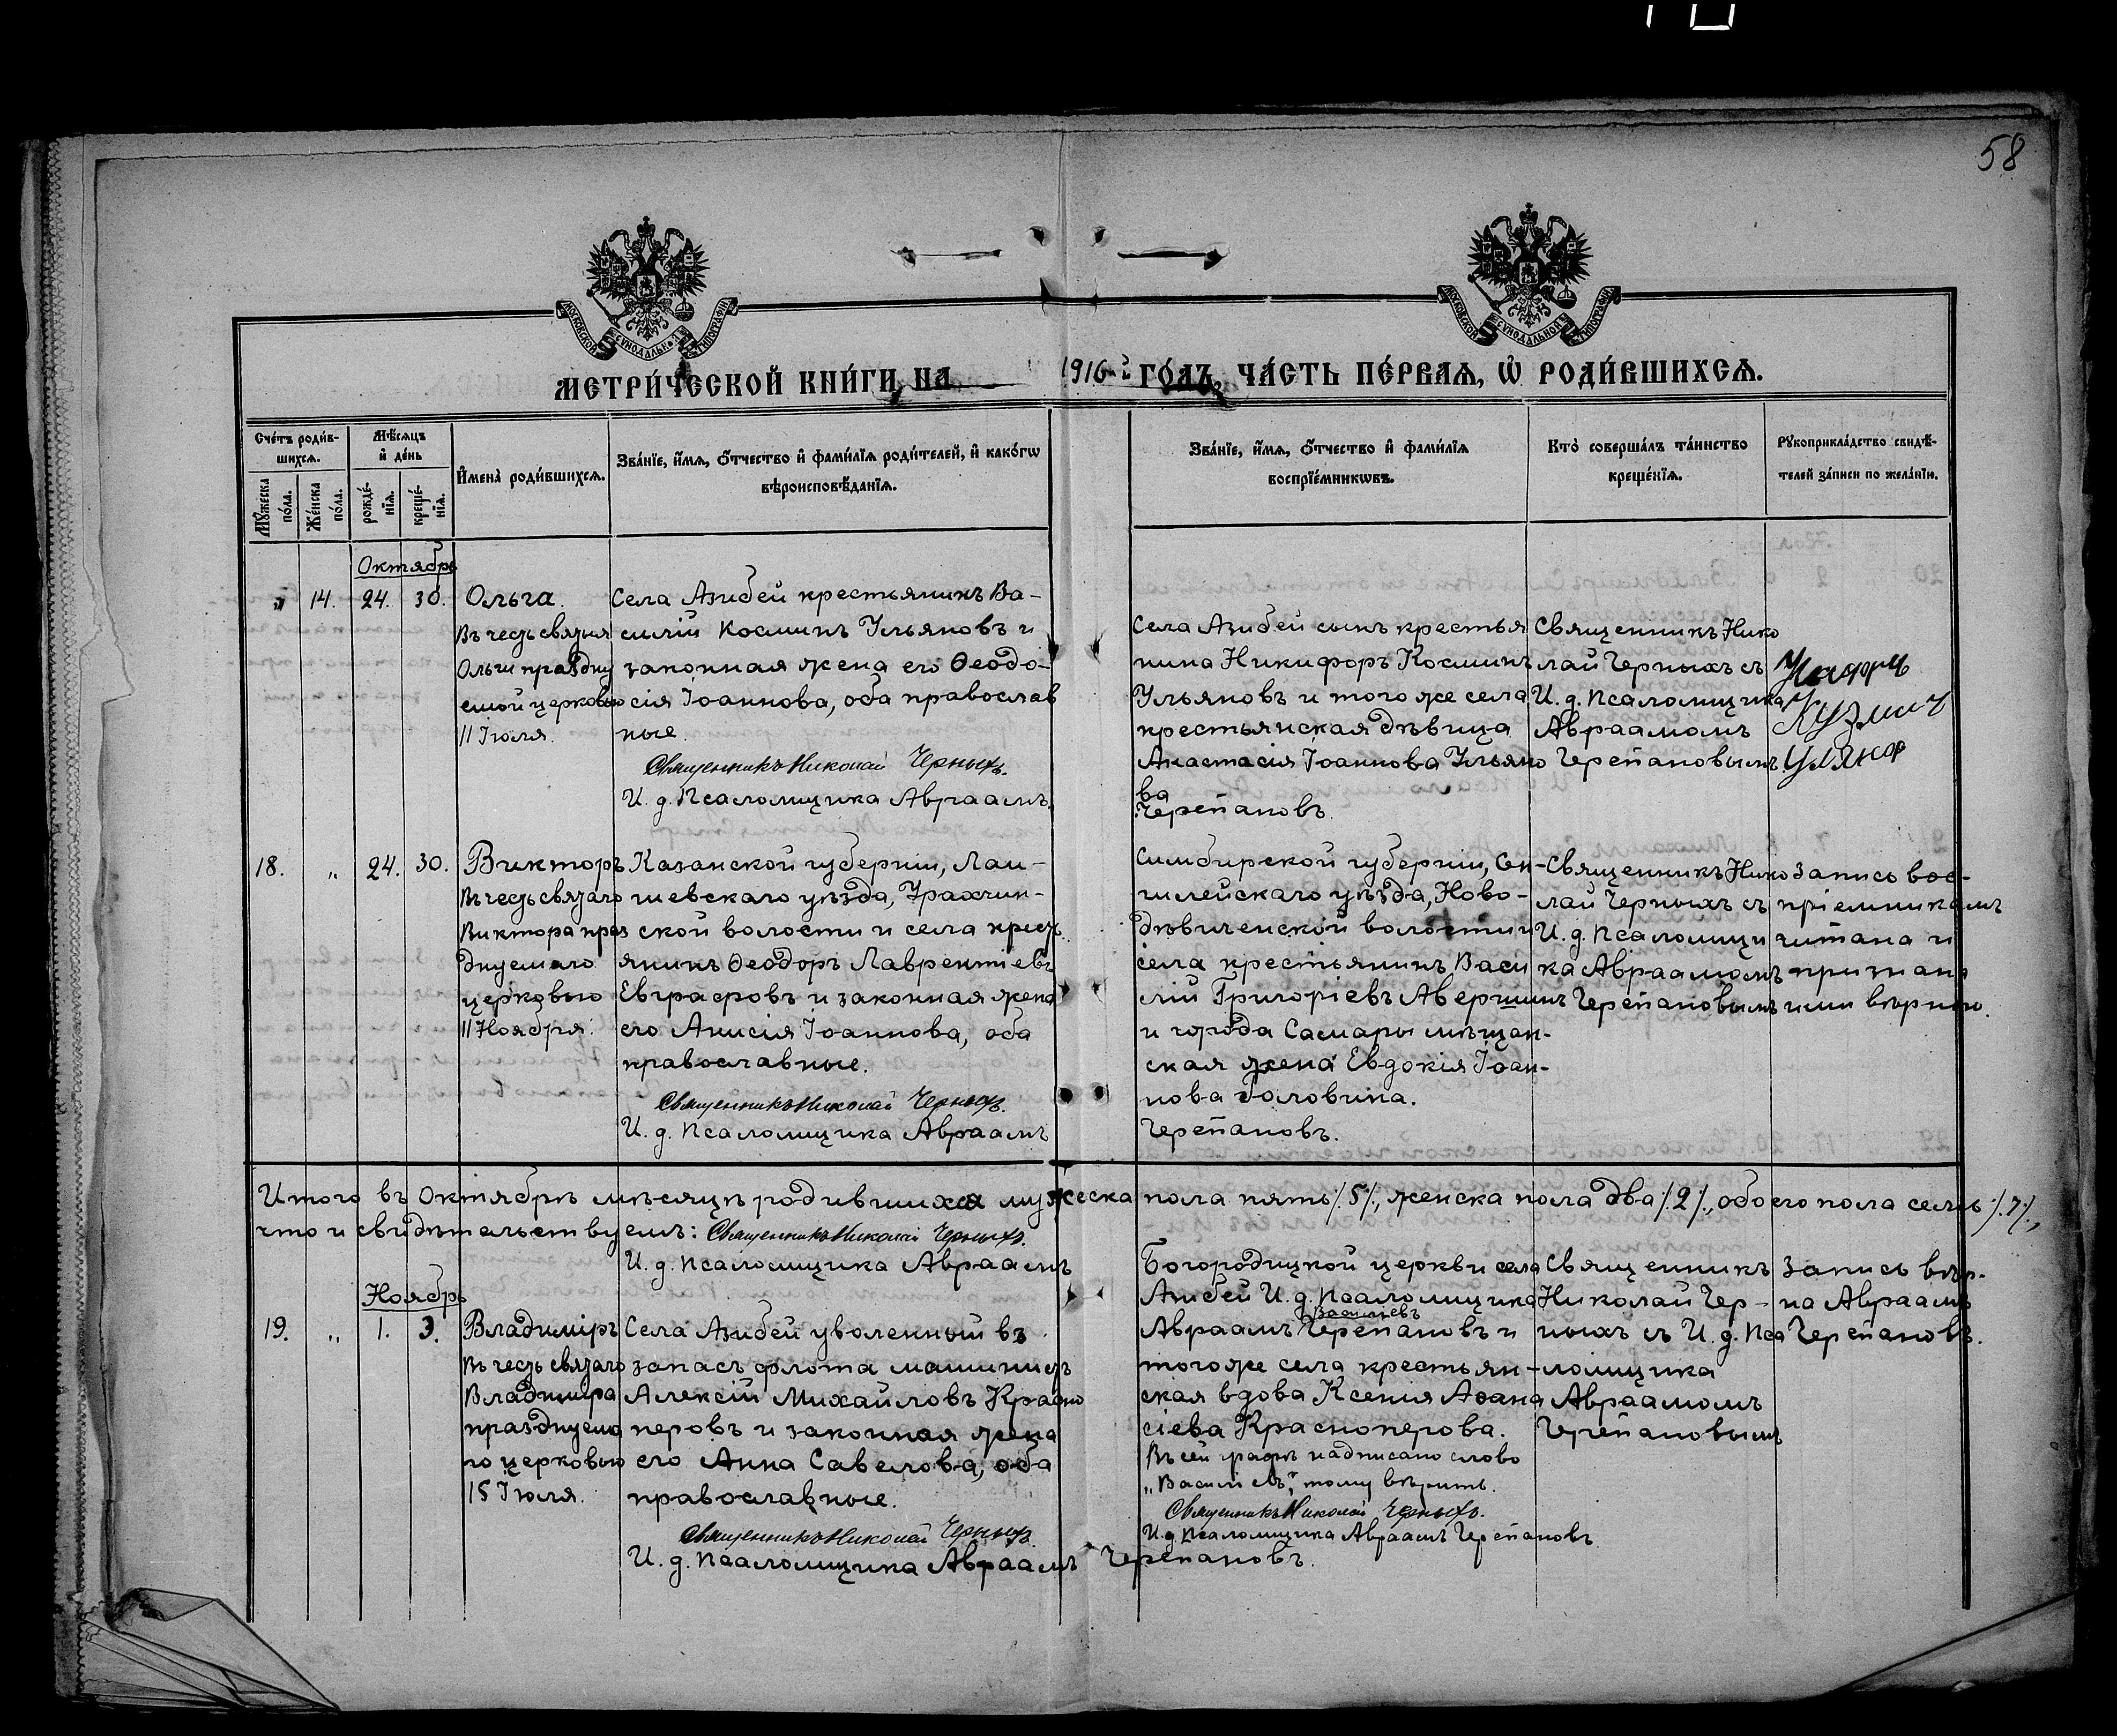 58
МОСКОВСКОЙ СѴНОДАЛЬНОЙ ТИПОГРАФІИ
МОСКОВСКОЙ СѴНОДАЛЬНОЙ ТИПОГРАФІИ
МЕТРИ́ЧЕСКОЙ КНИ́ГИ, НА 1916й ГО́ДЪ, ЧА́СТЬ ПЕ́РВАѦ, Ѡ҆ РОДИ́ВШИХСѦ.
Сче́тъ роди́в-
шихсѧ.
Мꙋ́жеска
по́ла.
Же́нска
по́ла.
Мѣ́сѧцъ
и҆ де́нь
рожде́-
нїѧ.
креще́-
нїѧ.
И҆мена̀ роди́вшихсѧ.
Зва́нїе, и҆́мѧ, ѻ҆́тчество и҆ фами́лїѧ роди́телей, и҆ како́гѡ
вѣроисповѣ́данїѧ.
Зва́нїе, и҆́мѧ, ѻ҆́тчество и҆ фами́лїѧ
воспрїе́мникѡвъ.
Кто̀ соверша́лъ та́инство
креще́нїѧ.
Рꙋкоприкла́дство свидѣ́-
телей за́писи по жела́нїю.
Октябрь
„ 14. 24. 30.
Ольга.
Въ честь святыя
Ольги праздну
емой церковью
11 Іюля.
Села Азибей крестьянинъ Ва-
силій Косминъ Ульяновъ и
законная жена его Ѳеодо-
сія Іоаннова, оба православ
ные.
Священникъ Николай Черныхъ.
И. д. Псаломщика Авраамъ
Села Азибей сынъ крестья
нина Никифоръ Косминъ
Ульяновъ и того же села
крестьянская дѣвица
Анастасія Іоаннова Ульяно
ва
Черепановъ.
Священникъ Нико
лай Черныхъ съ
И. д. Псаломщика
Авраамомъ
Черепановымъ
Кузмич
18. „ 24. 30.
Викторъ
Въ честь святаго
Виктора праз
днуемаго
церковью
11 Ноября.
Казанской губерніи, Лаи-
шевскаго уѣзда, Урахчин-
ской волости и села кресть
янинъ Ѳеодоръ Лаврентіевъ
Евграфовъ и законная жена
его Анисія Іоаннова, оба
православные.
Священникъ Николай Черныхъ.
И. д. Псаломщика Авраамъ
Симбирской губерніи, Сен-
гилейскаго уѣзда, Ново-
дѣвиченской волости и
села крестьянинъ Васи
лій Григоріевъ Авершинъ
и города Самары мѣщан-
ская жена Евдокія Іоан-
нова Головина.
Черепановъ.
Священникъ Нико
лай Черныхъ съ
И. д. Псаломщи
ка Авраамомъ
Черепановымъ
Запись вос-
пріемникамъ
читана и
признана
ими вѣрною.
Итого въ Октябрѣ мѣсяцѣ родившихся мужеска пола пять /5/, женска пола два /2/, обоего пола семь /7/,
что и свидѣтельствуемъ: Священникъ Николай Черныхъ.
И. д. Псаломщика Авраамъ
Ноябрь
19. „ 1. 3.
Владиміръ
Въ честь святаго
Владиміра
празднуема
го церковью
15 Іюля.
Села Азибей уволенный въ
запасъ флота машинистъ
Алексій Михайловъ Красно
перовъ и законная жена
его Анна Савелова, оба
православные.
Священникъ Николай Черныхъ.
И. д. Псаломщика Авраамъ Черепановъ.
Богородицкой церкви села
Азибей И. д. Псаломщика
Васильевъ
Авраамъ Черепановъ и
того же села крестьян-
ская вдова Ксенія Аѳана
сіева Красноперова.
Въ сей графѣ надписано слово
„Васильевъ", тому вѣрить.
Священникъ Николай Черныхъ.
И. д. Псаломщика Авраамъ Черепановъ
Священникъ
Николай Чер-
ныхъ съ И. д. Пса
ломщика
Авраамомъ
Черепановымъ
Запись вѣр-
на Авраамъ
Черепановъ.